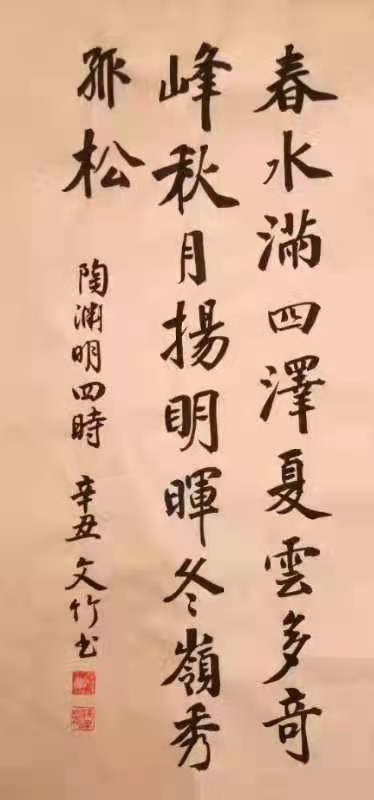 春水滿四澤夏雲多奇
峰秋月揚明暉冬嶺秀
孤松
陶淵明四時 辛丑 文竹书